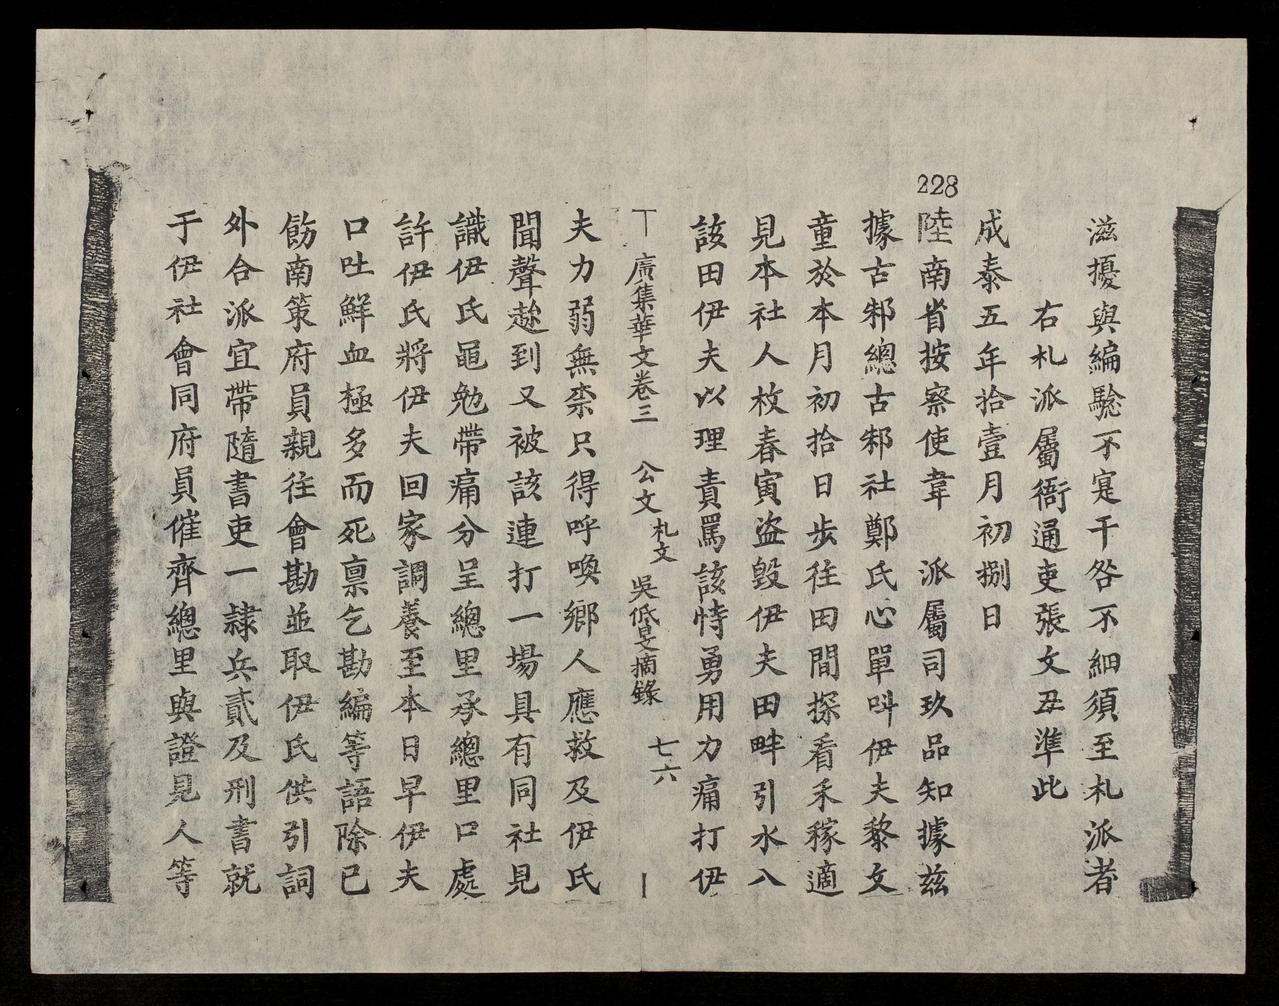 滋擾與編騐不寔干咎不細須至札派者
右札派屬衙通吏張文丑準此
成泰五年拾壹月初捌日
228
陸南省按察使韋　派屬司玖品知據茲
據古邾總古邾社鄭氏心單呌伊夫黎文
童於本月初拾日步往田間探看禾稼適
見本社人枚春寅盜毀伊夫田畔引水入
該田伊夫以理責罵該恃勇用力痛打伊
廣集華文卷三　公文　札文　吳低旻摘錄　七六
夫力弱無柰只得呼喚鄉人應救及伊氏
聞聲趂到又被該連打一場具有同社見
識伊氏黽勉帶痛分呈總里承總里口處
許伊氏將伊夫回家調養至本日早伊夫
口吐鮮血極多而死禀乞勘編等語除已
飭南策府員親往會勘並取伊氏供引詞
外合派宜帶隨書吏一隸兵貳及刑書就
于伊社會同府員催齊總里與證見人等